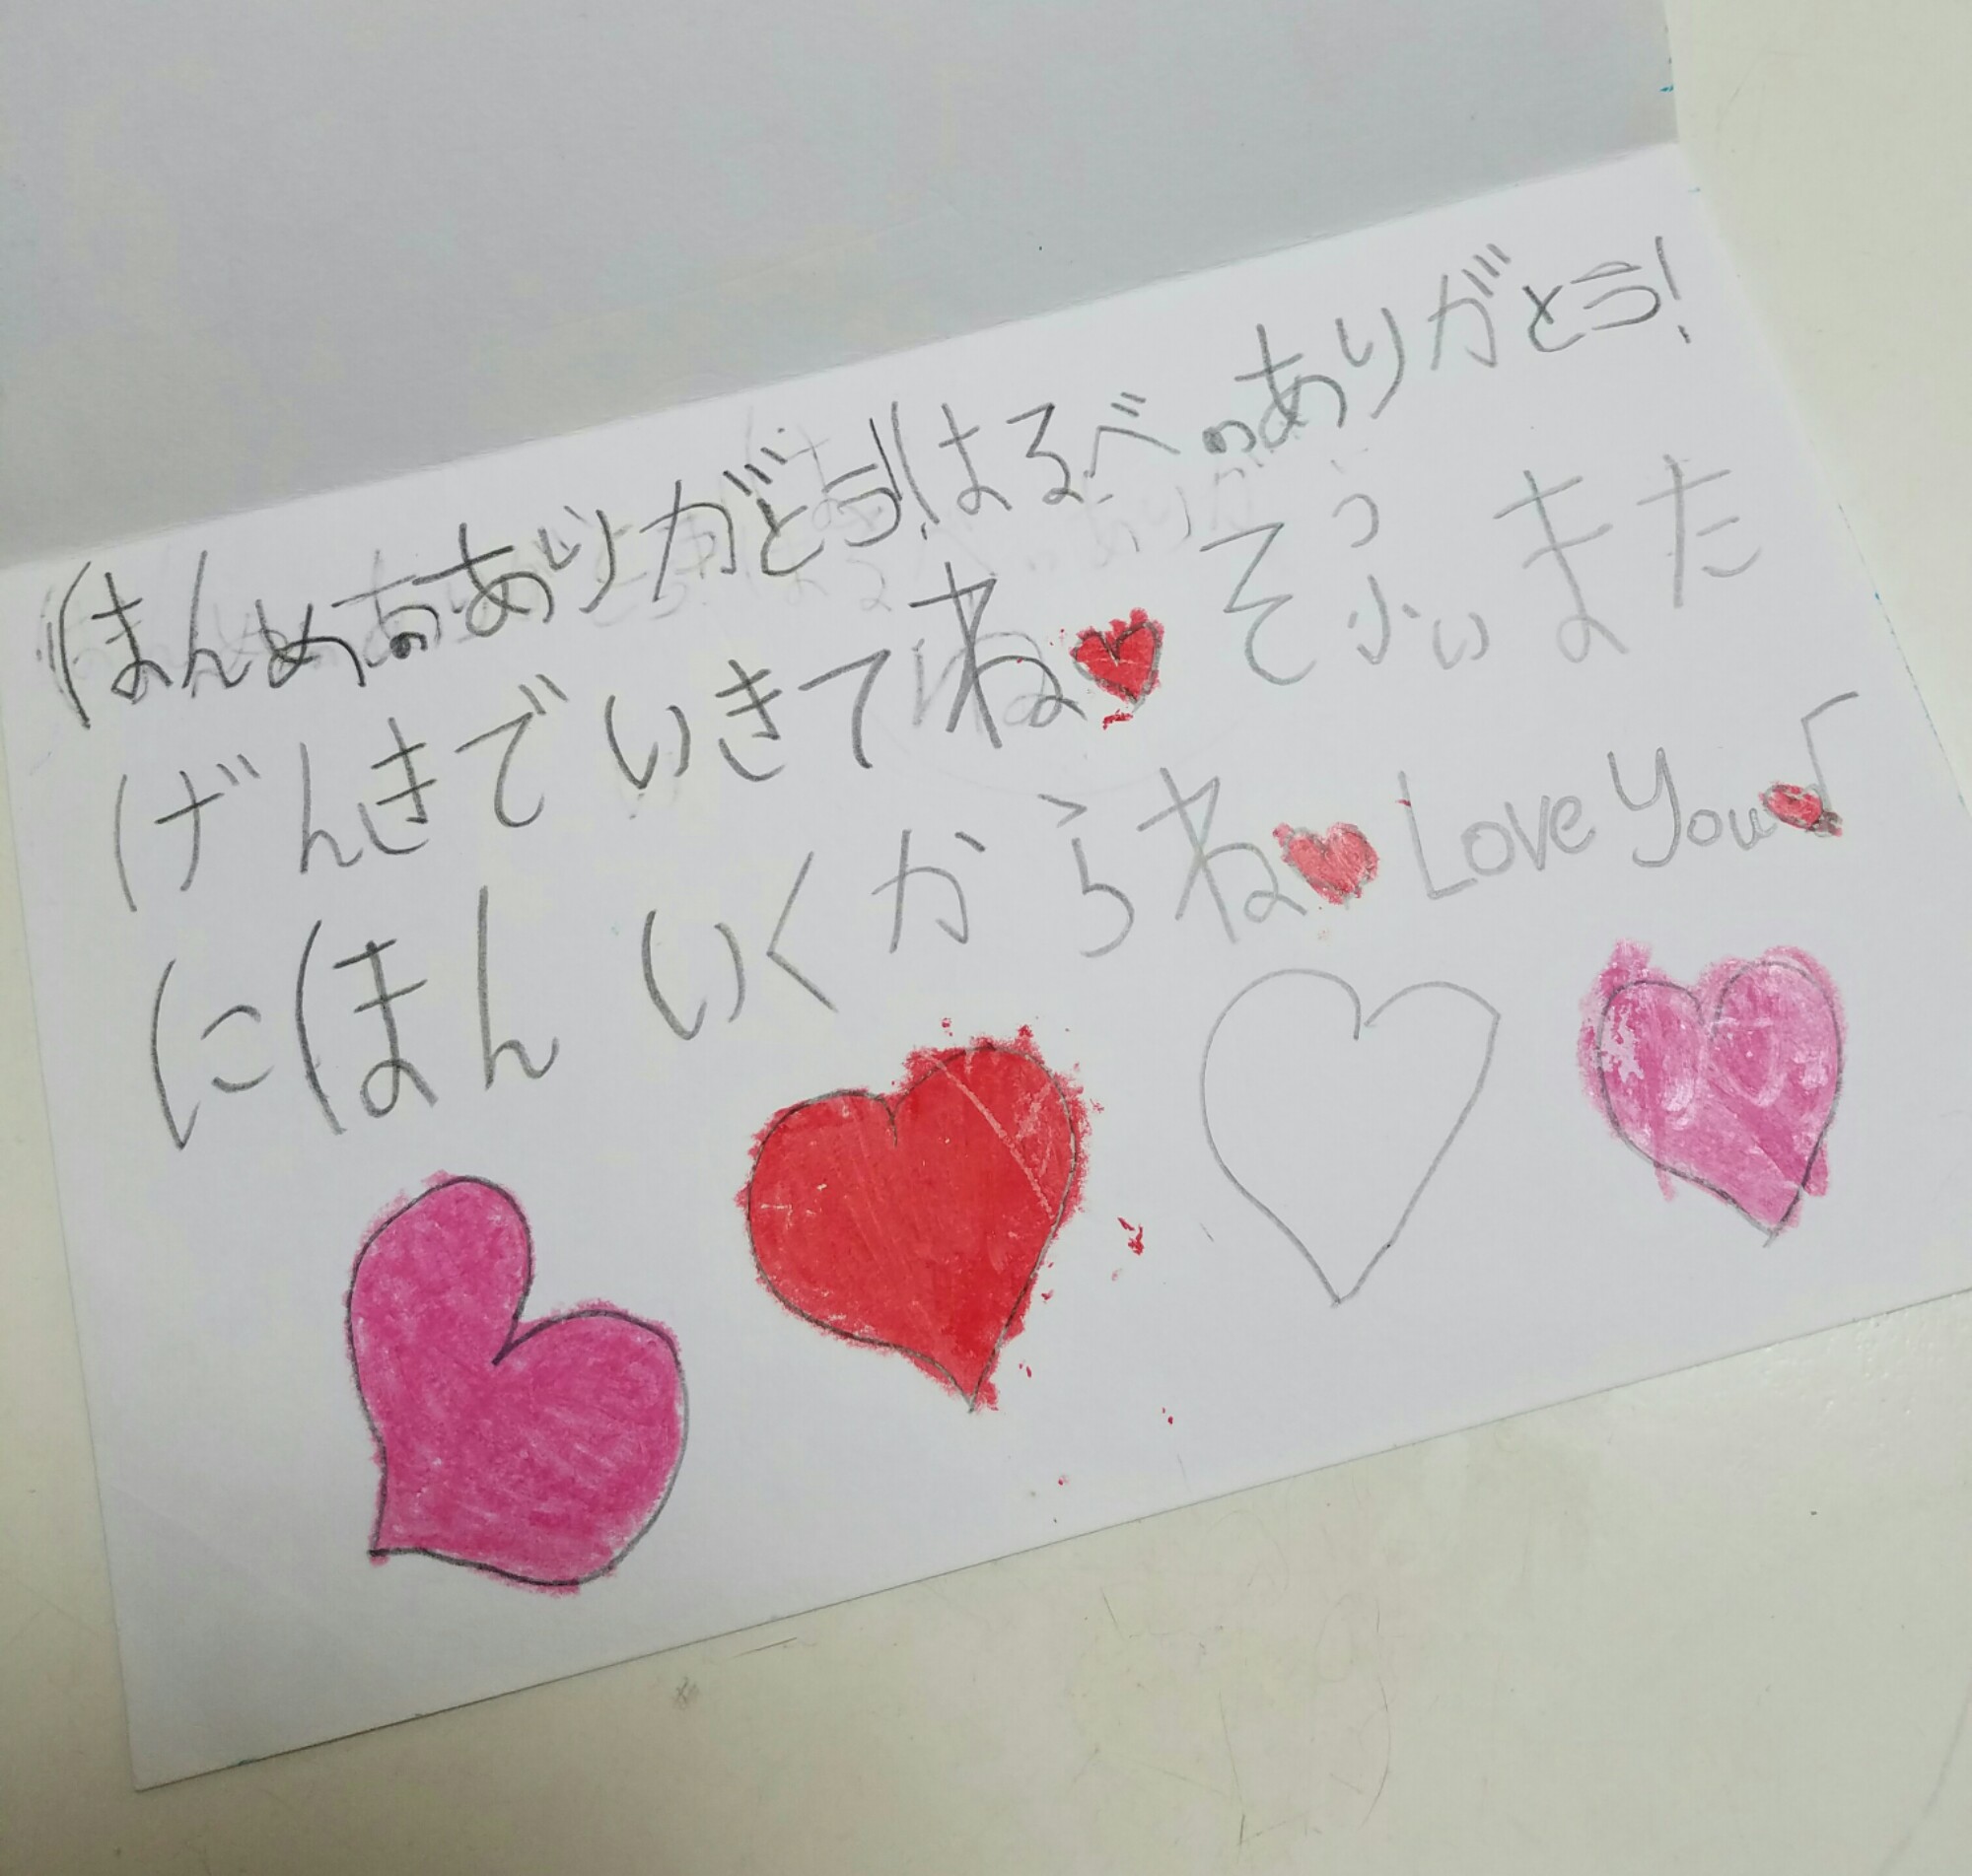 ほんめのありがとう!はるべのありがとう!
げんきでいきてね♥ そふぃまた
にほん いくからね♥ Love You♪